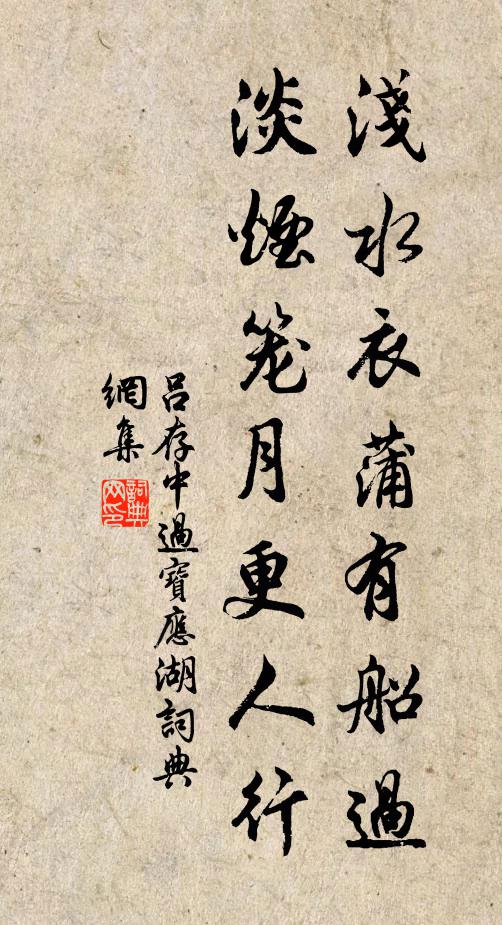 淺水衣蒲有船過
淡煙笼月更人行
吕存中過寶應湖詞典
網集
詞典
网印